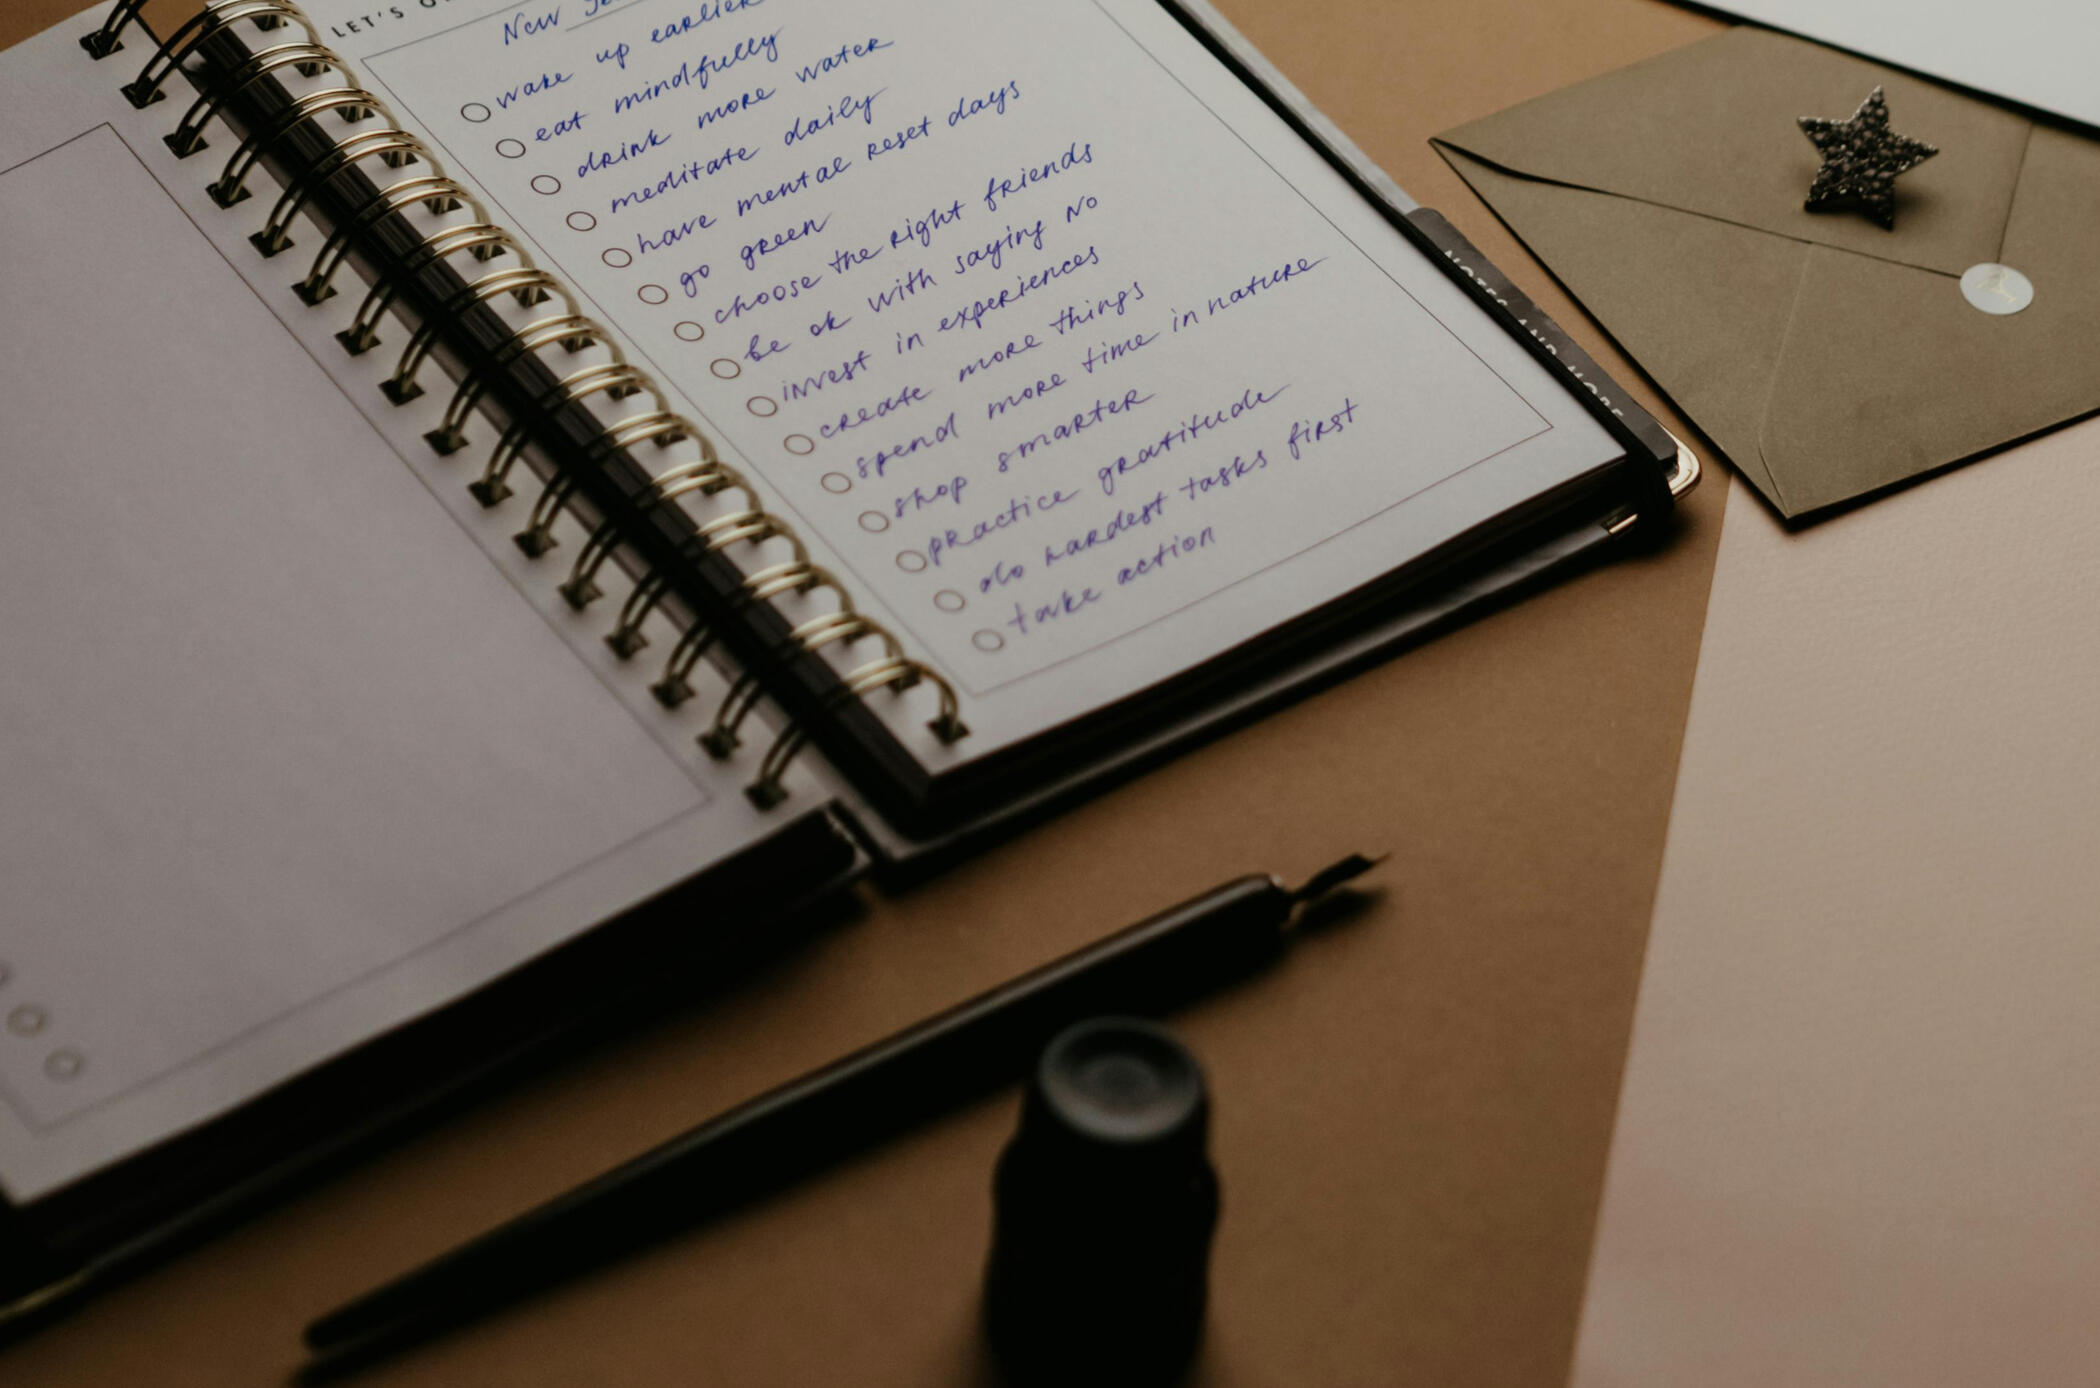 LET'S
New
wake up earlier
eat mindfully
drink more water
meditate daily
have mental reset days
go green
choose the right friends
be ok with saying NO
invest in experiences
create more things
spend more time in nature
shop smarter
practice gratitude
do hardest tasks first
take action
NOTES AND MORE